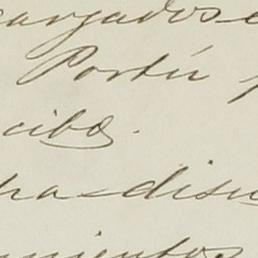 cargados e
Portú
cibo.
ha-disu
mientos